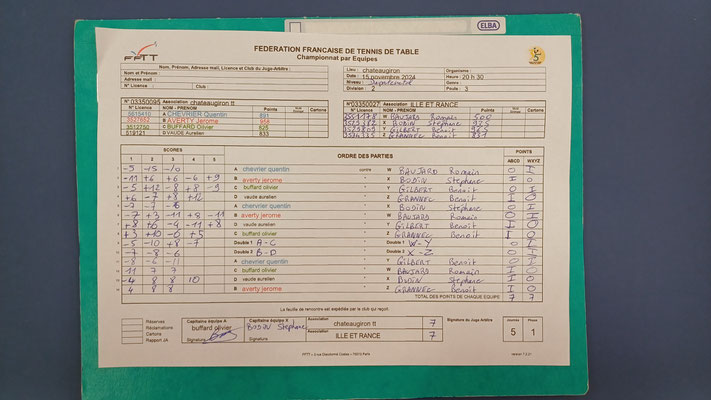 ELBA
FEDERATION FRANCAISE DE TENNIS DE TABLE
Championnat par Equipes
FFTT
Nom, Prénom, Adresse mail, Licence et Club du Juge-Arbitre :
Nom et Prénom :
Adresse mail :
N° Licence : Club :
Lieu : chateaugiron Organisme :
Date : 15 novembre 2024 Heure : 20 h 30
Niveau : Départemental
Division : 2 Poule : 3
N° 03350095 Association chateaugiron tt
N° Licence NOM - PRENOM Points Cartons
A CHEVRIER Quentin 891
B AVERTY Jerome 958
3512750 C BUFFARD Olivier 626
519121 D VAUDE Aurelien 833
N° 03350027 Association ILLE ET RANCE
N° Licence NOM - PRENOM Points Cartons
W BAUSARD Romain 500
X BODIN Stephane
Y GILBERT Benoit
Z GRANNEC Benoit
SCORES ORDRE DES PARTIES POINTS
1 2 3 4 5 ABCD WXYZ
-9 -15 -10 A chevrier quentin contre W BAUSARD Romain 0 I
-11 +6 +6 -6 +9 B averty jerome X BODIN Stephane I 0
-5 +12 -8 +8 -9 C buffard olivier Y GILBERT Benoit 0 I
+6 -7 +8 +12 D vaude aurelien Z GRANNEC Benoit I 0
A chevrier quentin X BODIN Stephane 0 I
-7 +3 -11 +8 -11 B averty jerome W BAUSARD Romain 0 I
+8 +6 -4 -11 +8 D vaude aurelien Y GILBERT Benoit I 0
+3 +10 -6 +5 C buffard olivier Z GRANNEC Benoit I 0
-5 -10 +8 -7 Double 1 A-C Double 1 W-Y 0 I
-7 -8 -6 Double 2 B-D Double 2 X-Z 0 I
-8 -6 -11 A chevrier quentin Y GILBERT Benoit 0 I
11 7 7 C buffard olivier W BAUSARD Romain I 0
-4 8 8 10 D vaude aurelien X BODIN Stephane I 0
4 8 8 B averty jerome Z GRANNEC Benoit I 0
TOTAL DES POINTS DE CHAQUE EQUIPE 7 7
La feuille de rencontre est expédiée par le club qui reçoit
Réserves
Réclamations
Cartons
Rapport JA
Capitaine équipe A
buffard olivier
Signature
Capitaine équipe X
BODIN Stephane
Signature
Association
chateaugiron tt 7
Association
ILLE ET RANCE 7
Signature du Juge-Arbitre
Journée Phase
5 1